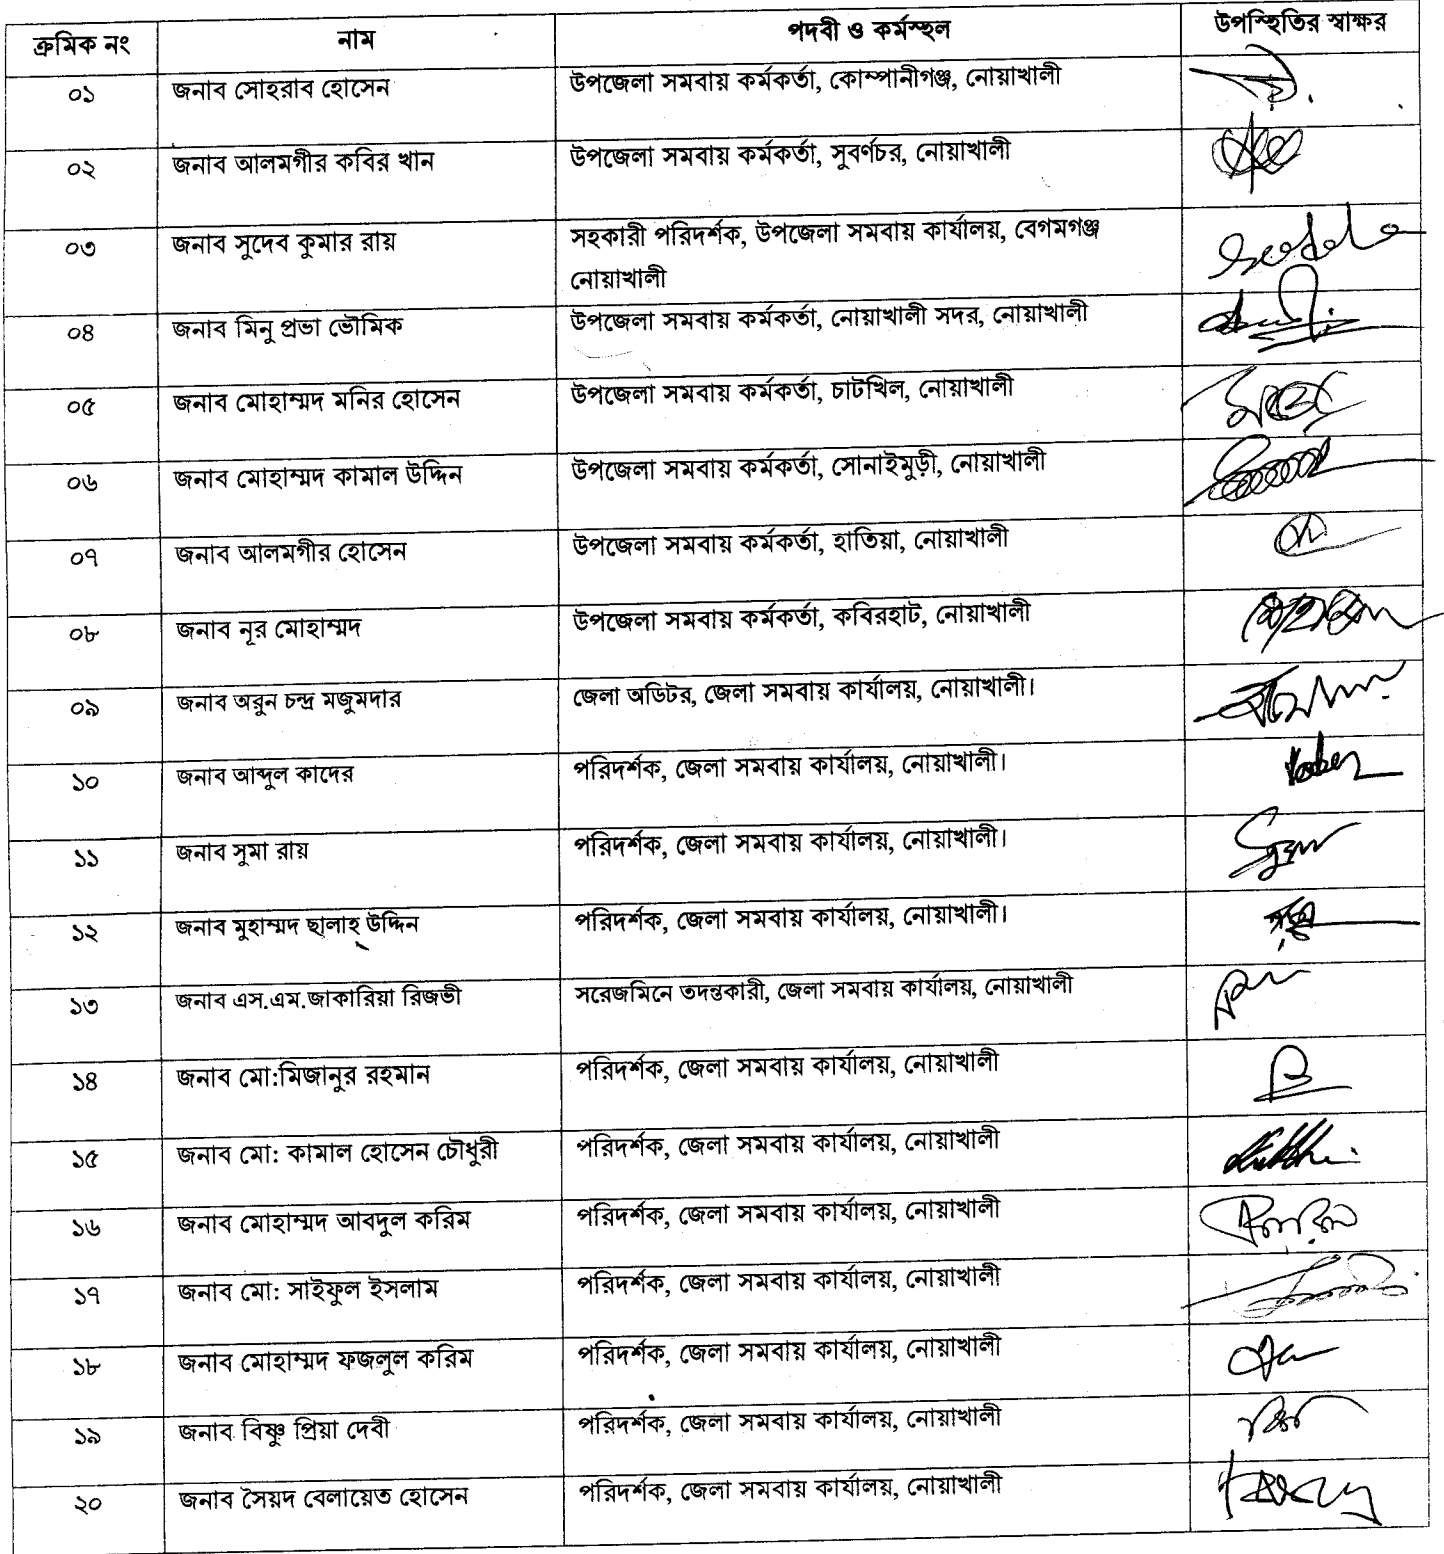 ক্রমিক নং নাম পদবী ও কর্মস্হল উপস্হিতির স্বাক্ষর
০১ জনাব সোহরাব হোসেন উপজেলা সমবায় কর্মকর্তা, কোম্পানীগঞ্জ, নোয়াখালী
০২ জনাব আলমগীর কবির খান উপজেলা সমবায় কর্মকর্তা, সুবর্ণচর, নোয়াখালী
০৩ জনাব সুদেব কুমার রায় সহকারী পরিদর্শক, উপজেলা সমবায় কার্যালয়, বেগমগঞ্জ
নোয়াখালী
০৪ জনাব মিনু প্রভা ভৌমিক উপজেলা সমবায় কর্মকর্তা, নোয়াখালী সদর, নোয়াখালী
০৫ জনাব মোহাম্মদ মনির হোসেন উপজেলা সমবায় কর্মকর্তা, চাটখিল, নোয়াখালী
০৬ জনাব মোহাম্মদ কামাল উদ্দিন উপজেলা সমবায় কর্মকর্তা, সোনাইমুড়ী, নোয়াখালী
০৭ জনাব আলমগীর হোসেন উপজেলা সমবায় কর্মকর্তা, হাতিয়া, নোয়াখালী
০৮ জনাব নূর মোহাম্মদ উপজেলা সমবায় কর্মকর্তা, কবিরহাট, নোয়াখালী
০৯ জনাব অরুন চন্দ্র মজুমদার জেলা অডিটর, জেলা সমবায় কার্যালয়, নোয়াখালী।
১০ জনাব আব্দুল কাদের পরিদর্শক, জেলা সমবায় কার্যালয়, নোয়াখালী।
১১ জনাব সুমা রায় পরিদর্শক, জেলা সমবায় কার্যালয়, নোয়াখালী।
১২ জনাব মুহাম্মদ ছালাহ্ উদ্দিন পরিদর্শক, জেলা সমবায় কার্যালয়, নোয়াখালী।
১৩ জনাব এস.এম.জাকারিয়া রিজভী সরেজমিনে তদন্তকারী, জেলা সমবায় কার্যালয়, নোয়াখালী
১৪ জনাব মো:মিজানুর রহমান পরিদর্শক, জেলা সমবায় কার্যালয়, নোয়াখালী
১৫ জনাব মো: কামাল হোসেন চৌধুরী পরিদর্শক, জেলা সমবায় কার্যালয়, নোয়াখালী
১৬ জনাব মোহাম্মদ আবদুল করিম পরিদর্শক, জেলা সমবায় কার্যালয়, নোয়াখালী
১৭ জনাব মো: সাইফুল ইসলাম পরিদর্শক, জেলা সমবায় কার্যালয়, নোয়াখালী
১৮ জনাব মোহাম্মদ ফজলুল করিম পরিদর্শক, জেলা সমবায় কার্যালয়, নোয়াখালী
১৯ জনাব বিষ্ণু প্রিয়া দেবী পরিদর্শক, জেলা সমবায় কার্যালয়, নোয়াখালী
২০ জনাব সৈয়দ বেলায়েত হোসেন পরিদর্শক, জেলা সমবায় কার্যালয়, নোয়াখালী